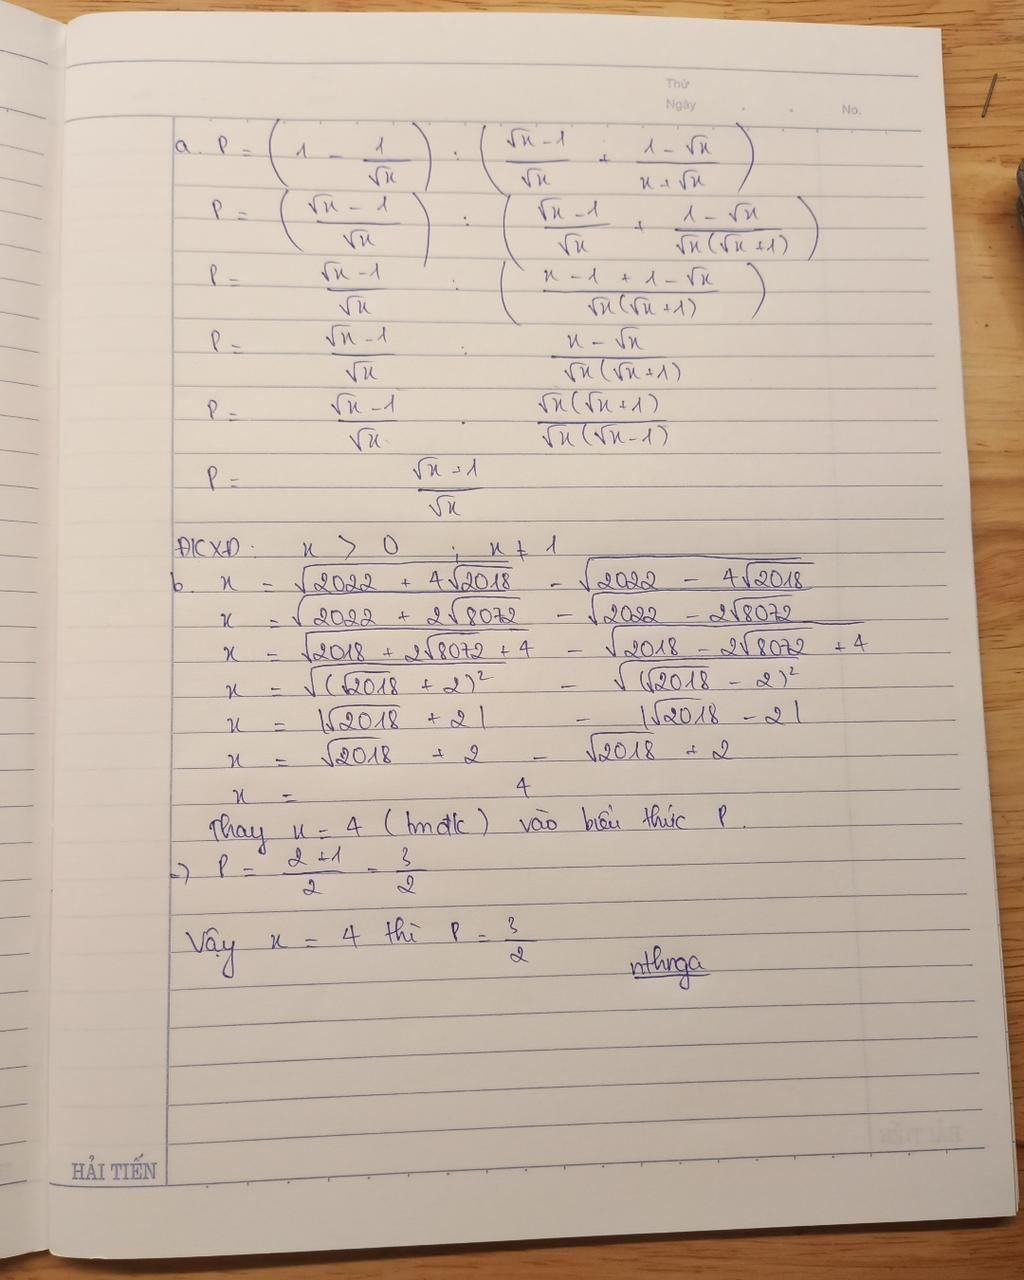 Thứ
Ngày
No.
a. P = (1 - 1/√x) : ((√x - 1)/√x + (1 - √x)/(x + √x))
P = ((√x - 1)/√x) : ((√x - 1)/√x + (1 - √x)/(√x(√x + 1)))
P = (√x - 1)/√x : ((x - 1 + 1 - √x)/(√x(√x + 1)))
P = (√x - 1)/√x : (x - √x)/(√x(√x + 1))
P = (√x - 1)/√x . (√x(√x + 1))/(√x(√x - 1))
P = (√x + 1)/√x
ĐKXĐ: x > 0 ; x ≠ 1
b. x = √(2022 + 4√2018) - √(2022 - 4√2018)
x = √(2022 + 2√8072) - √(2022 - 2√8072)
x = √(2018 + 2√8072 + 4) - √(2018 - 2√8072 + 4)
x = √((√2018 + 2)²) - √((√2018 - 2)²)
x = |√2018 + 2| - |√2018 - 2|
x = √2018 + 2 - √2018 + 2
x = 4
Thay x = 4 (tmđk) vào biểu thức P.
=> P = (2 + 1)/2 = 3/2
Vậy x = 4 thì P = 3/2
nthnga
HẢI TIẾN